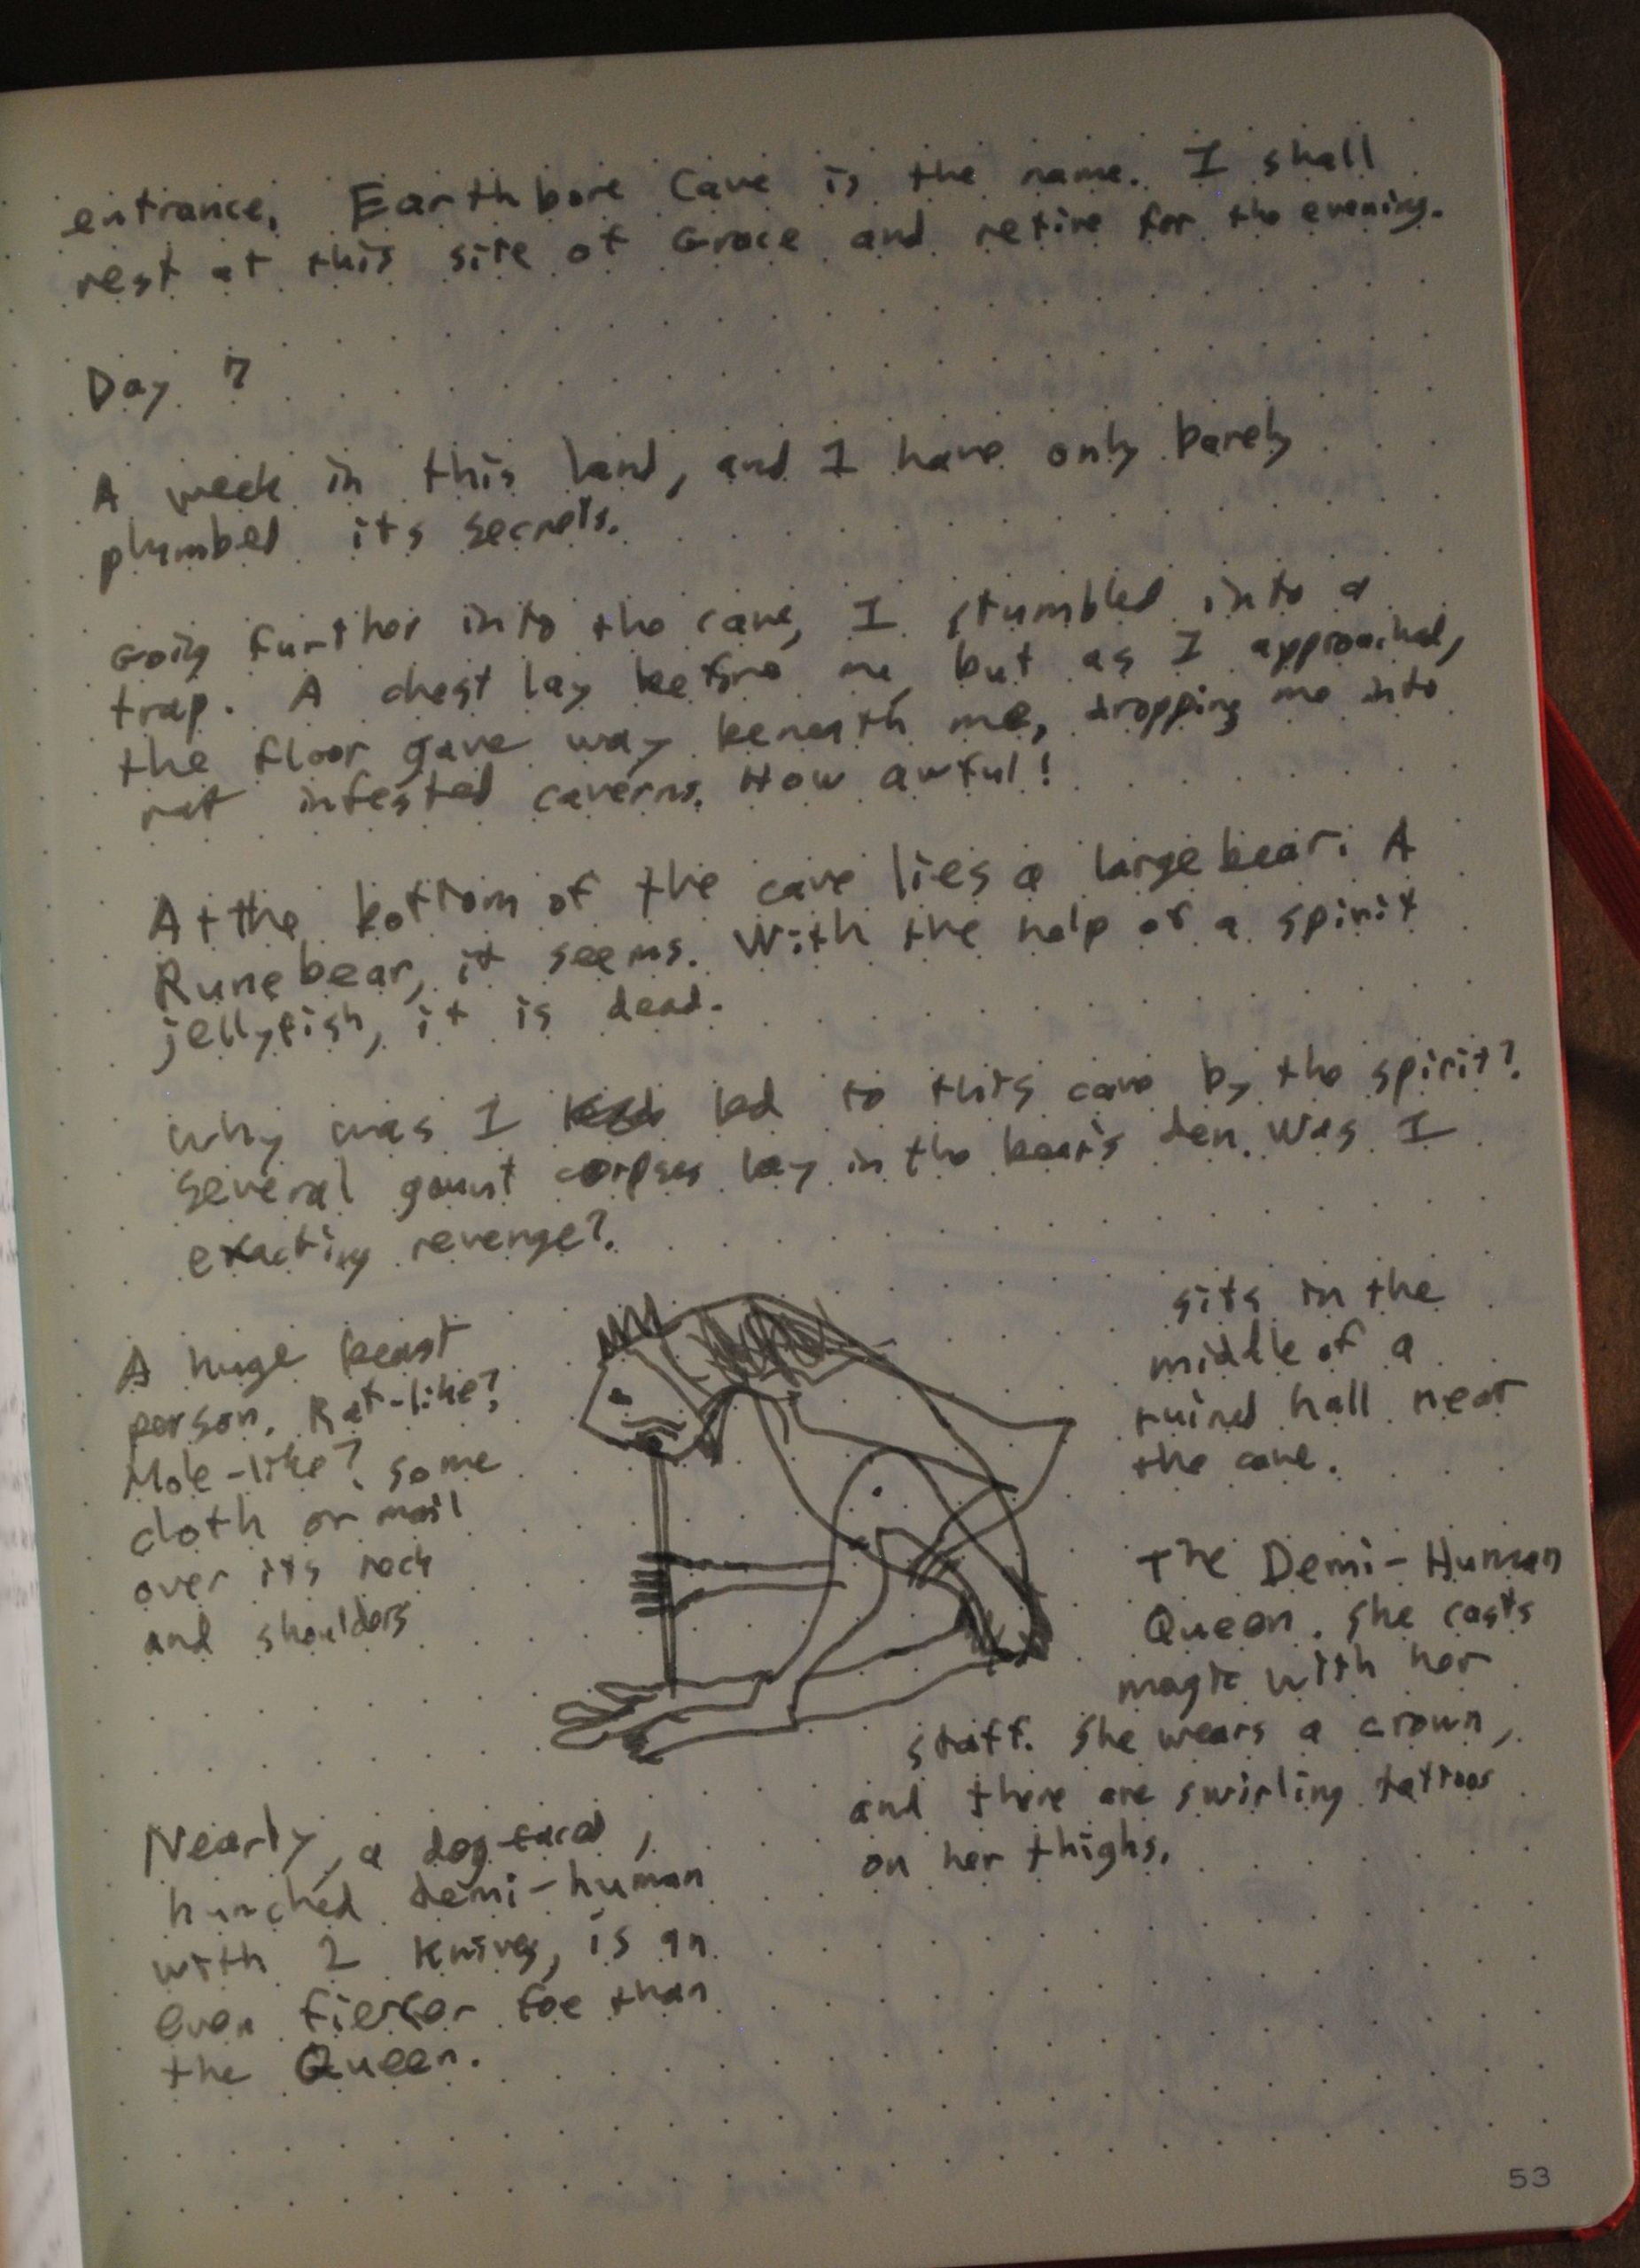 entrance. Earthbore Cave is the name. I shall
rest at this site of Grace and retire for the evening.
Day 7
A week in this land, and I have only barely
plumbed its secrets.
Going further into the cave, I stumbled into a
trap. A chest lay before me, but as I approached,
the floor gave way beneath me, dropping me into
rat infested caverns. How awful!
At the bottom of the cave lies a large bear. A
Runebear, it seems. With the help of a spirit
jellyfish, it is dead.
Why was I led to this cave by the spirit?
Several gaunt corpses lay in the bear's den. Was I
exacting revenge?
A huge beast
person. Rat-like?
Mole-like? Some
cloth or mail
over its neck
and shoulders
sits in the
middle of a
ruined hall near
the cave.
The Demi-Human
Queen. She casts
magic with her
staff. She wears a crown,
and there are swirling tattoos
on her thighs.
Nearly, a dog-faced,
hunched demi-human
with 2 knives, is an
even fiercer foe than
the Queen.
53